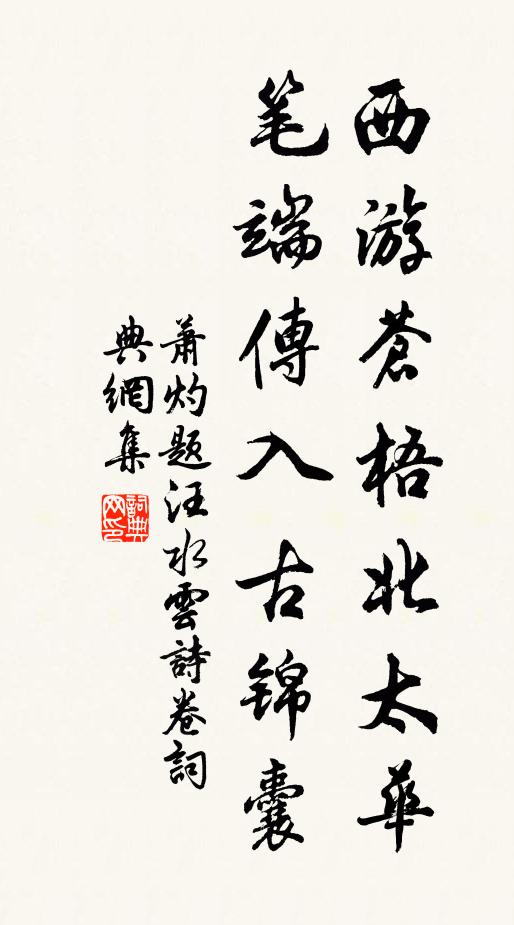 西游蒼梧北太華
笔端傳入古锦囊
萧灼题汪水雲詩卷詞
典網集
詞典网印